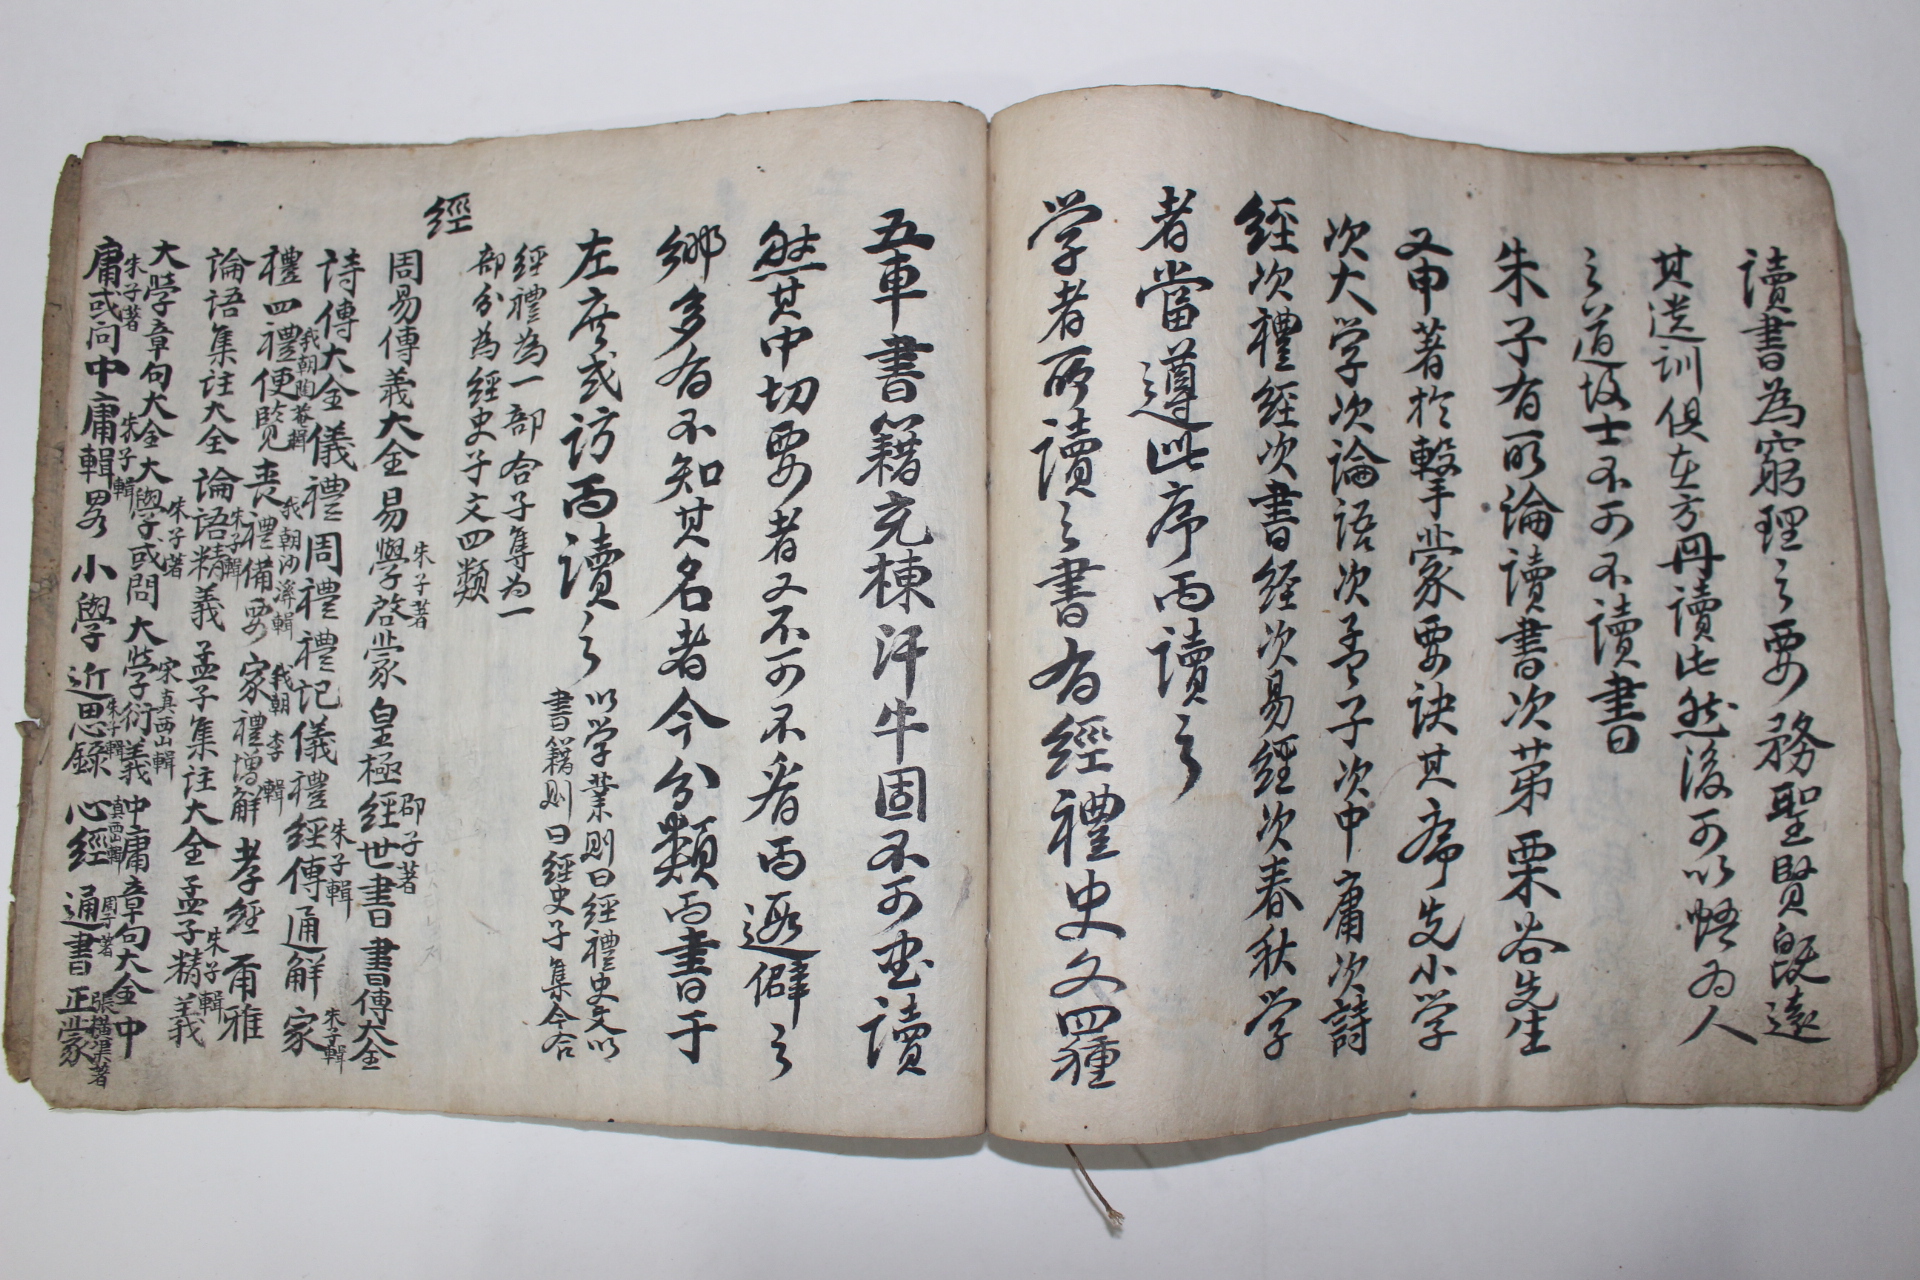 讀書為窮理之要務聖賢旣遠
其遺訓俱在方冊讀此然後可以悟為人
之道故士不可不讀書
朱子有所論讀書次第栗谷先生
又申著於擊蒙要訣其序先小学
次大学次論語次孟子次中庸次詩
經次禮經次書經次易經次春秋学
者當遵此序而讀之
学者所讀之書有經禮史文四種
五車書籍充棟汗牛固不可盡讀
然其中切要者又不可不看而遐僻之
鄉多有不知其名者今分類而書于
左庶或訪而讀之
以学業則曰經禮史文以
書籍則曰經史子集今合
經禮為一部合子集为一
部分為經史子文四類
經
周易傳義大全易學啓蒙朱子著皇極經世書邵子著書傳大全
詩傳大全儀禮周禮禮記儀禮經傳通解朱子輯家
禮四禮便覽我朝陶菴輯喪禮備要我朝沙溪輯家禮增解我朝李輯孝經爾雅
論語集註大全論語精義朱子輯孟子集註大全孟子精義朱子輯
大學章句大全大學或問朱子著大学衍義宋真西山輯中庸章句大全中
庸或问朱子著中庸輯畧朱子輯小學近思錄朱子輯心經真西山輯通書周子著正蒙張橫渠著